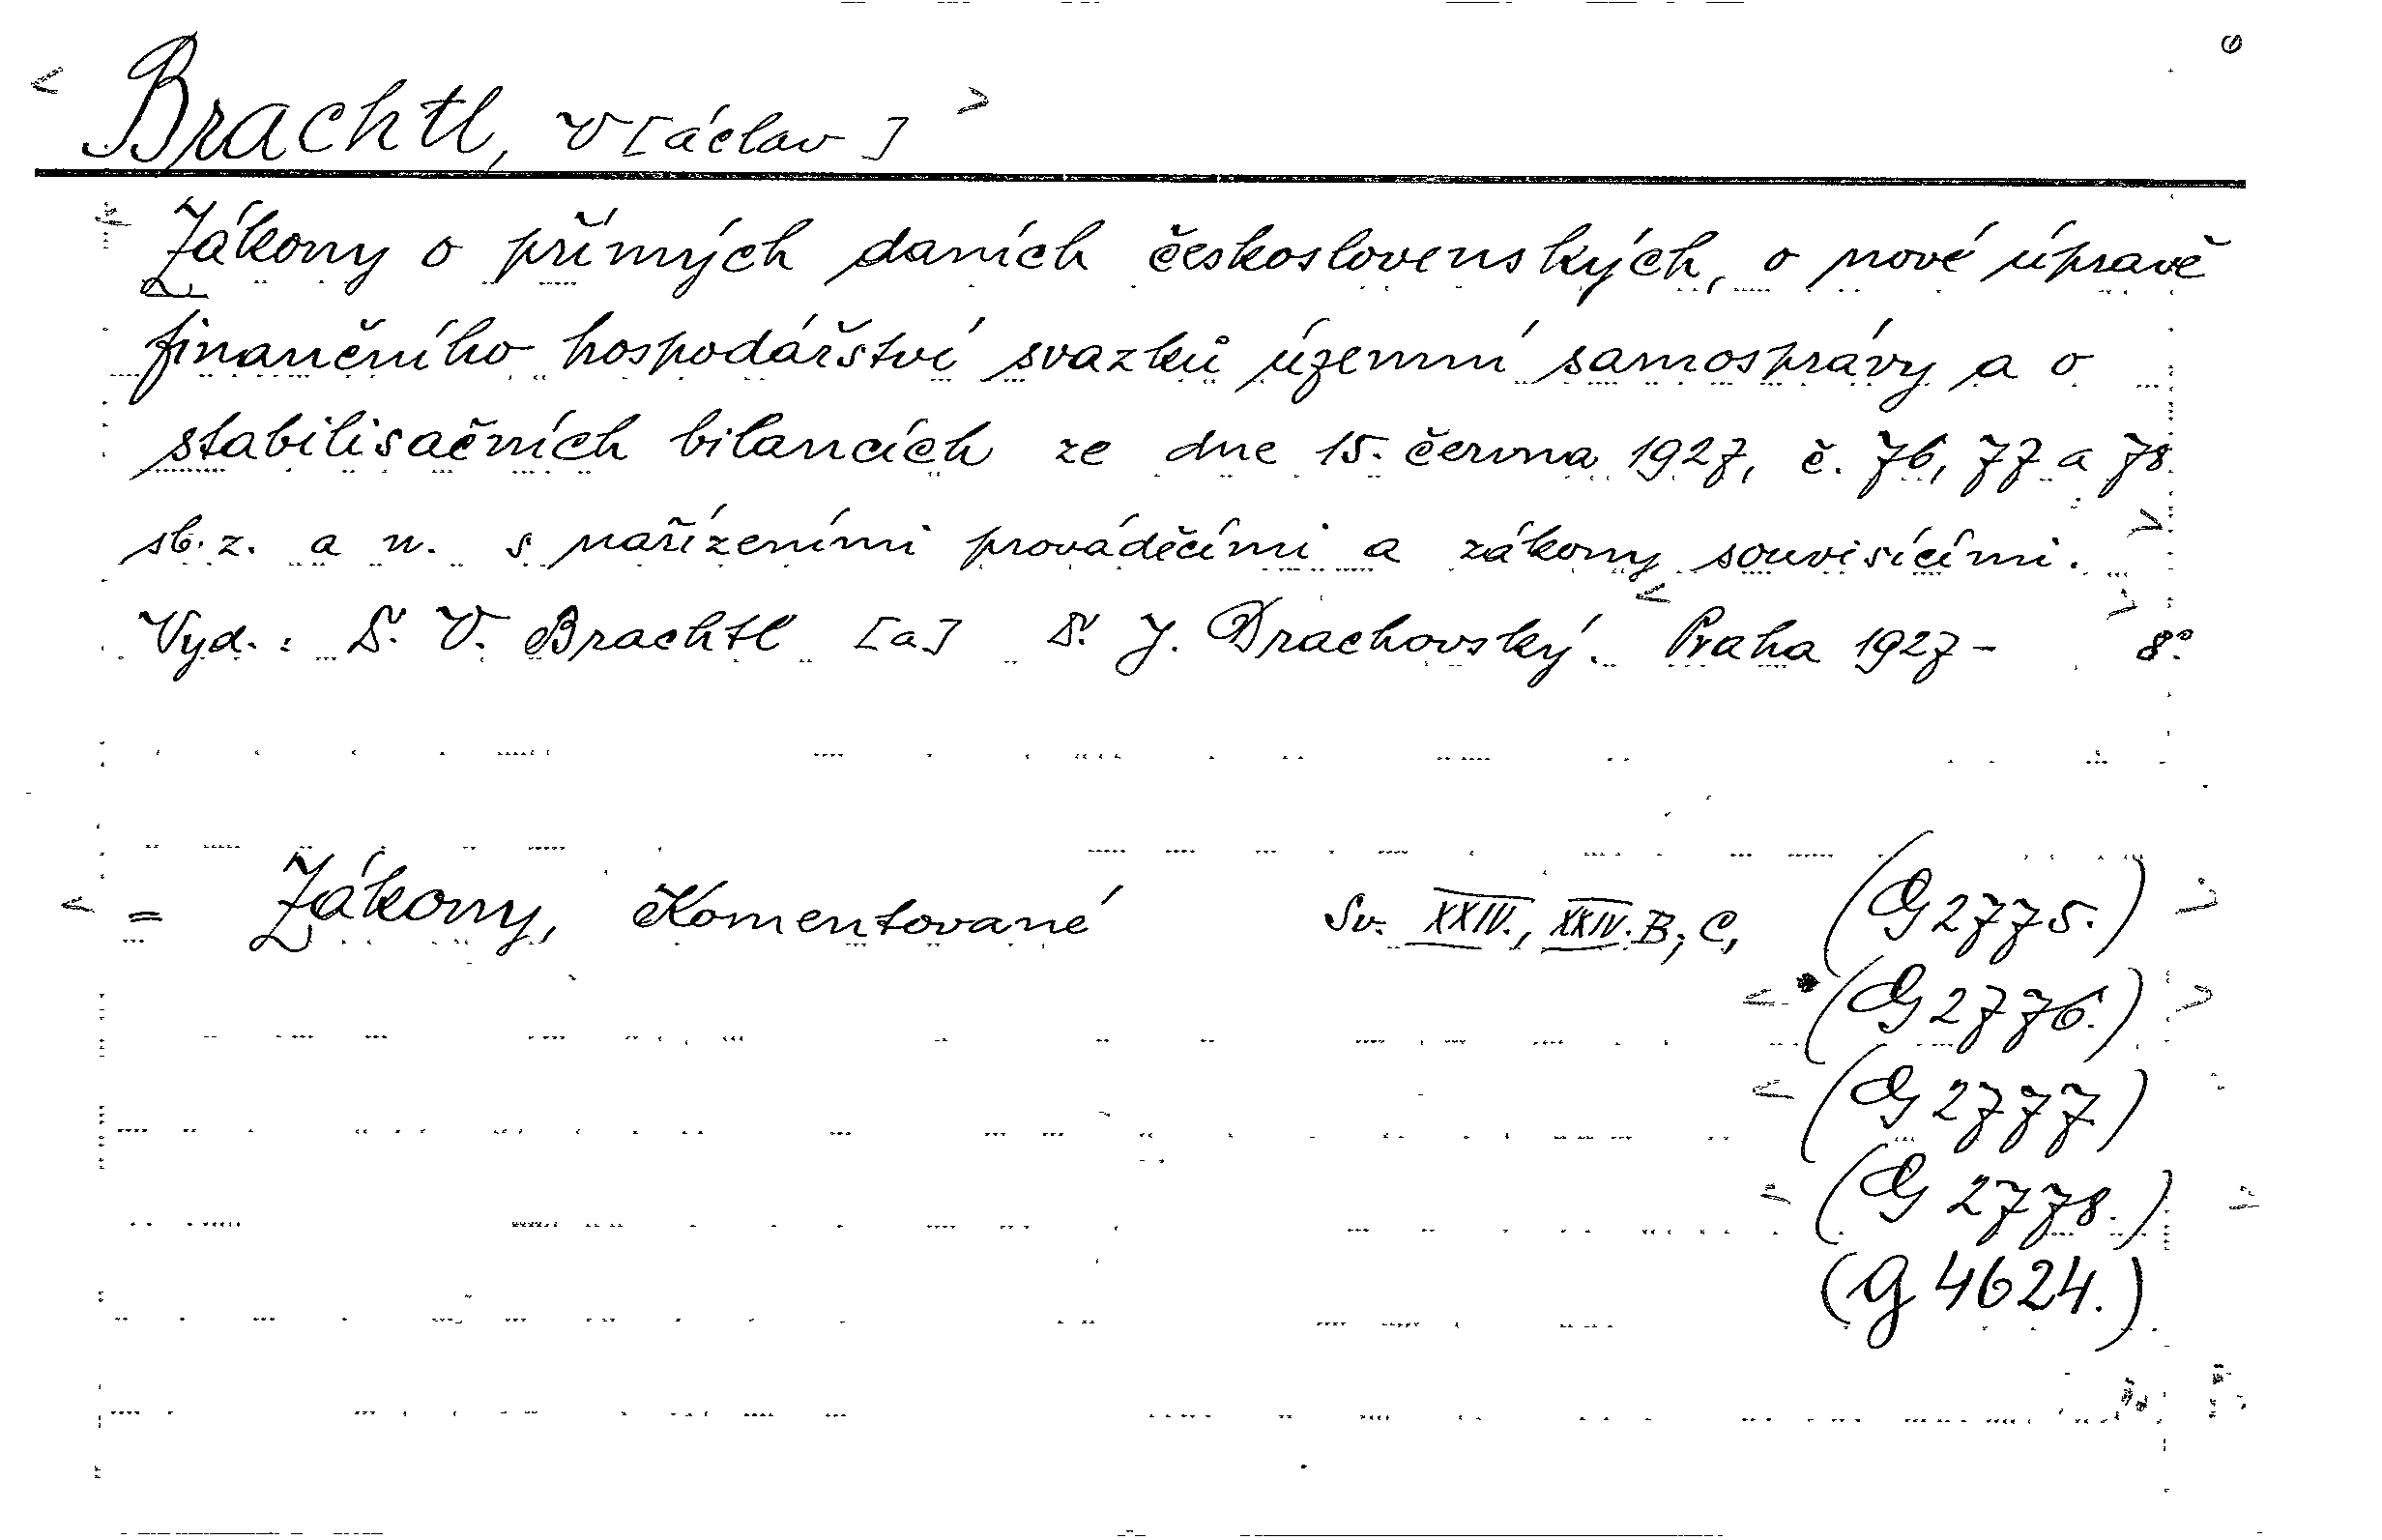 < Brachtl, V[áclav] >
< Zákony o přímých daních československých, o nové úpravě
finančního hospodářství svazků územní samosprávy a o
stabilisačních bilancích ze dne 15. června 1927, č. 76, 77 a 78
sb. z. a n. s nařízeními prováděcími a zákony souvisícími. >
Vyd.: Dr. V. Brachtl [a] Dr. J. Drachovský. < Praha 1927 - > 8°.
< = Zákony, Komentované Sv. XXIV., XXIV. B, C, (G 2775.) >
< (G 2776.) >
< (G 2777.)
< (G 2778.) >
(G 4624.)